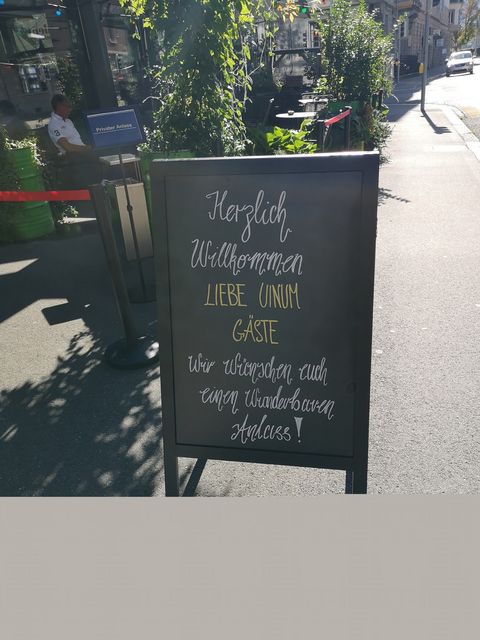 Privater Anlass
Herzlich
Willkommen
LIEBE VINUM
GÄSTE
Wir wünschen euch
einen wunderbaren
Anlass!